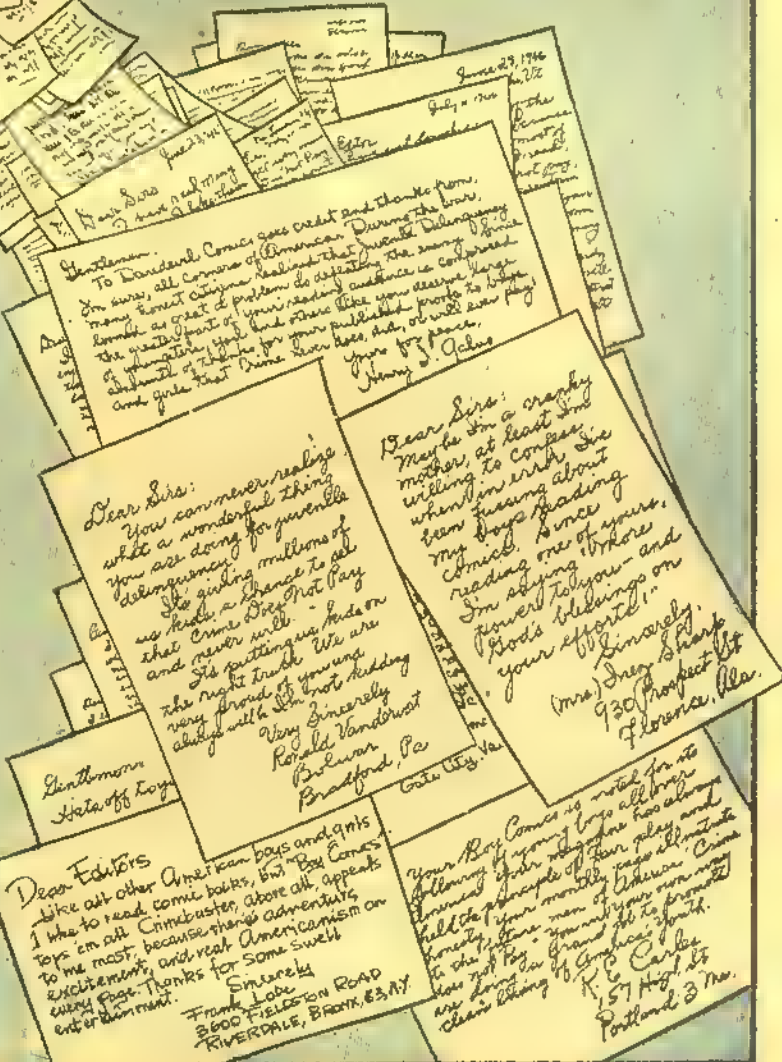 June 29, 1946
July 1946
June 23, 46
Dear Sirs
I have read many
Gentlemen.
To Daredevil Comics goes credit and thanks from,
I'm sure, all corners of America. During the war,
many honest citizens realized that Juvenile Delinquency
loomed as great a problem as defeating the enemy. Since
the greater part of your reading audience is comprised
of youngsters, you and others like you deserve a large
of thanks for your published proofs to boys
and girls that Crime never does, did, or will ever pay.
yours for peace,
Henry J.
Dear Sirs:
You can never realize
what a wonderful thing
you are doing for juvenile
delinquency.
It's giving millions of
us kids a chance to see
that Crime Does Not Pay
and never will.
It's putting us kids on
the right track. We are
very proud of you and
always will be I'm not kidding
Very Sincerely
Ronald Vanderwat
Bradford, Pa
Dear Sirs:
Maybe I'm a cranky
mother, at least I'm
willing to confess
when in error I've
been fussing about
my boys reading
comics. Since
reading one of yours,
I'm saying "more
power to you - and
God's blessings on
your efforts,"
Sincerely,
(Mrs.) Inez Sharp
930 Prospect St
Florence, Ala.
Gate City, Va.
Gentlemen:
Hats off to you
Dear Editors
Like all other American boys and girls
I like to read comic books, but "Boy Comics"
tops 'em all. Crimebuster, above all, appeals
to me most, because there's adventure
excitement, and real Americanism on
every page. Thanks for some swell
entertainment.
Sincerely
Frank Lobe
3600 FIELDSTON ROAD
RIVERDALE, BRONX, 63, N.Y.
Your Boy Comics is noted for its
following of young boys all over
America. Your magazine has always
held the principle of fair play and
honesty, your monthly page illustrate
to the future men of America "Crime
does not Pay" - you in your own way
are doing a grand job to promote
clean living of America's Youth.
R. E. Carles
157 High St
Portland 3 Me.